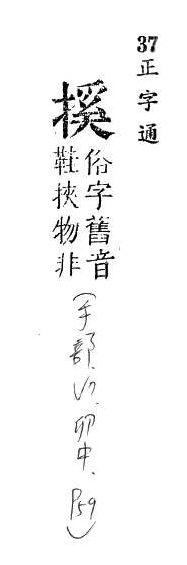 37正字通
㨙
俗字舊音
鞋挾物非
(手部.V7.卯中.P59)